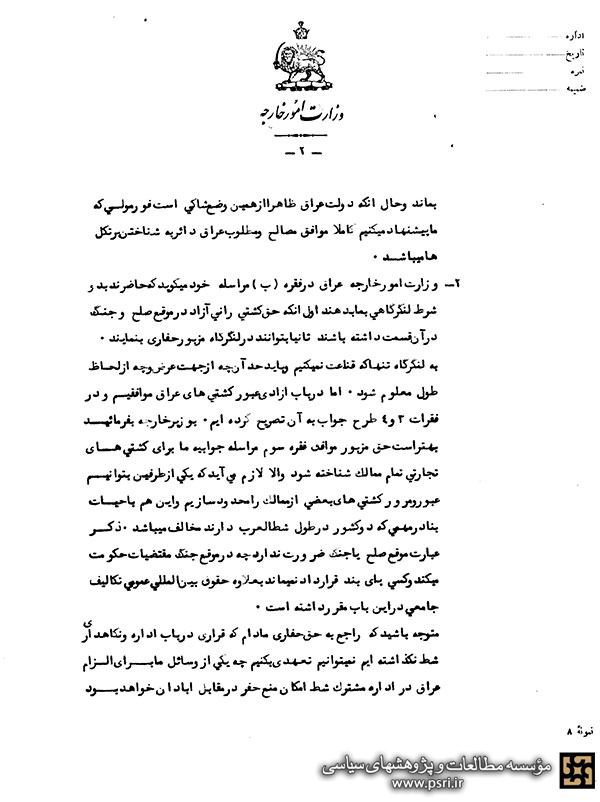 اداره
تاریخ
نمره
ضمیمه
وزارت امور خارجه
— ۲ —
بماند وحال آنکه دولت عراق ظاهرا ازهمین وضع شاکی است فورمولی که
ما پیشنهاد میکنیم کاملا موافق مصالح ومطلوب عراق دائر به شناختن پرتکل
ها میباشد ۰
۲— وزارت امور خارجه عراق در فقره (ب) مراسله خود میگوید که حاضرند بدو
شرط لنگرگاهی بما بدهند اولی آنکه حق کشتی رانی آزاد در موقع صلح و جنگ
در آن قسمت داشته باشند ثانیا بتوانند در لنگرگاه مزبور حفاری بنمایند ۰
به لنگرگاه تنها که قناعت نمیکنیم وباید حد آن چه از جهت عرض وچه از لحاظ
طول معلوم شود ۰ اما در باب آزادی عبور کشتی های عراق موافقیم و در
فقرات ۳ و ۴ طرح جواب به آن تصریح کرده ایم ۰ بوزیر خارجه بفرمائید
بهتر است حق مزبور موافق فقره سوم مراسله جوابیه ما برای کشتی های
تجارتی تمام ممالک شناخته شود والا لازم می آید که یکی از طرفین بتوانیم
عبور و مرور کشتی های بعضی از ممالک را محدود سازیم واین هم با حیات
بنادر مهمی که دو کشور در طول شط العرب دارند مخالف میباشد ۰ ذکر
عبارت موقع صلح یا جنگ ضرورت ندارد چه در موقع جنگ مقتضیات حکومت
میکند وکسی پای بند قرارداد نمیماند بعلاوه حقوق بین المللی عمومی تکالیف
جامعی در این باب مقرر داشته است ۰
متوجه باشید که راجع به حق حفاری مادام که قراری در باب اداره ونگاهداری
شط نگذاشته ایم نمیتوانیم تعهدی بکنیم چه یکی از وسائل ما برای الزام
عراق در اداره مشترک شط امکان منع حفر در مقابل آبادان خواهد بود
نمونهٔ ۸
مؤسسه مطالعات و پژوهشهای سیاسی
www.psri.ir